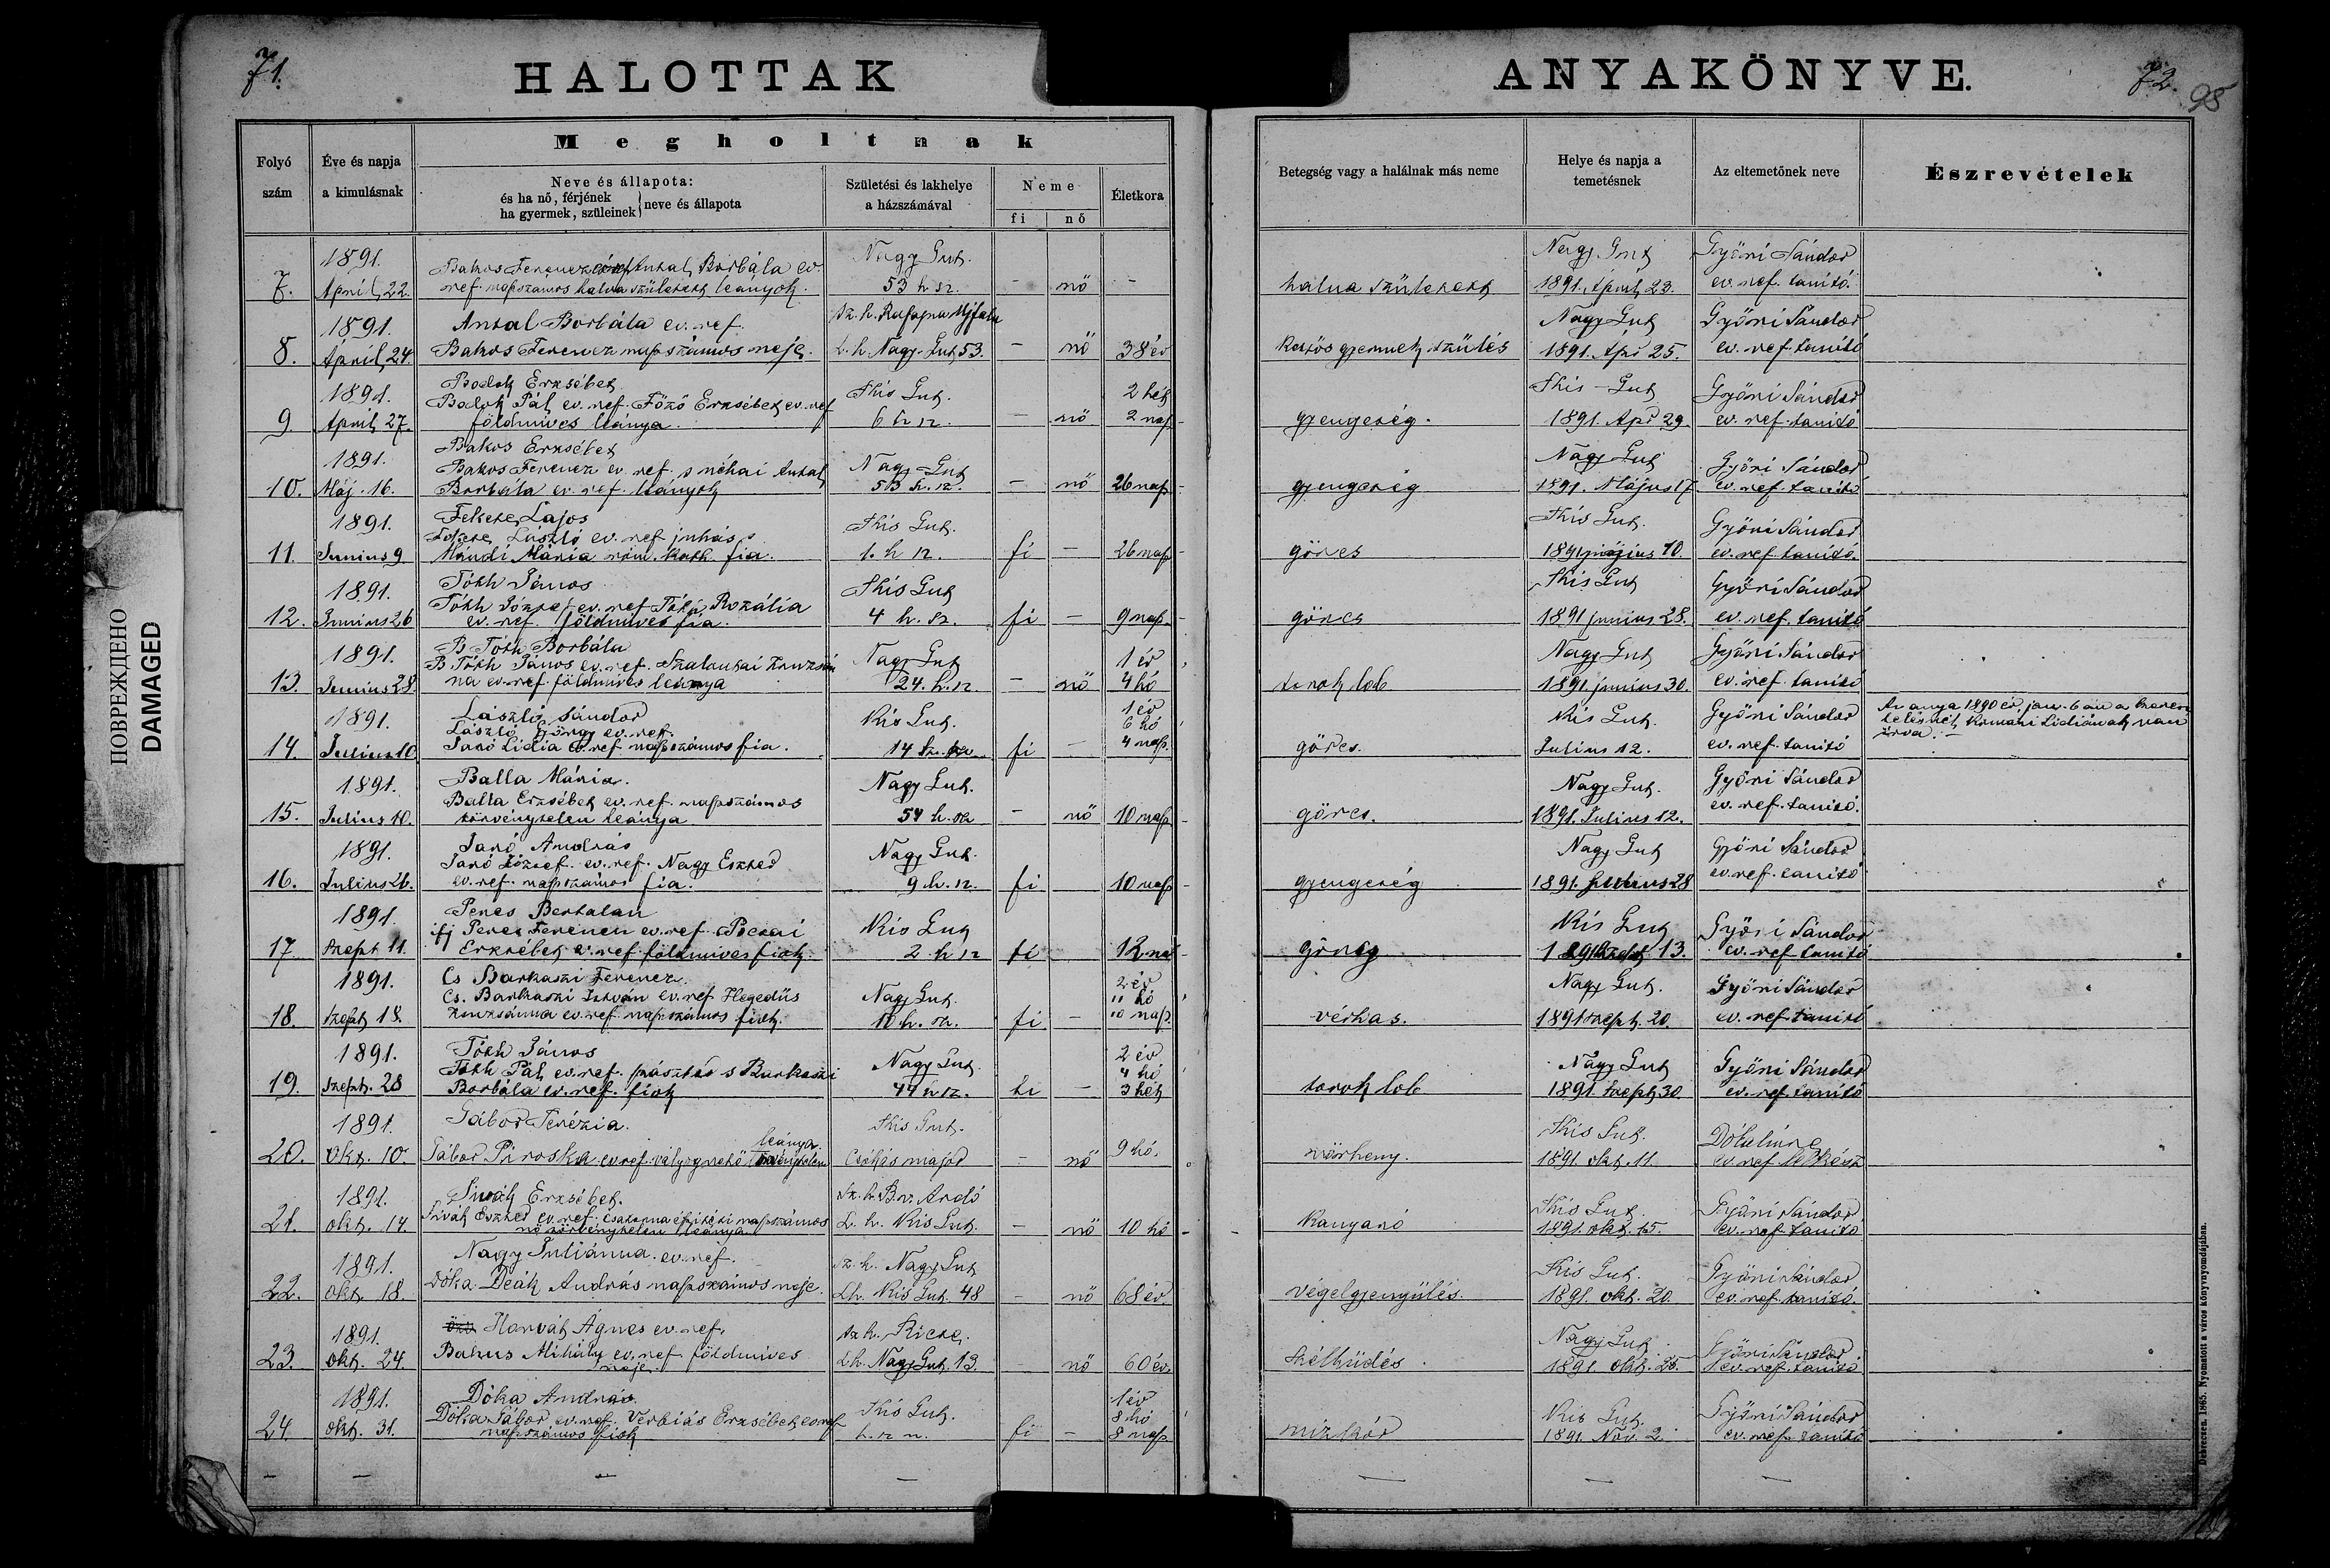 71.
HALOTTAK
ANYAKÖNYVE.
72.
98
Folyó szám
Éve és napja a kimulásnak
Megholtnak
Neve és állapota:
és ha nő, férjének
ha gyermek, szüleinek
neve és állapota
Születési és lakhelye a házszámával
Neme
fi
nő
Életkora
Betegség vagy a halálnak más neme
Helye és napja a temetésnek
Az eltemetőnek neve
Észrevételek
1891. Nagy Gut. Nagy Gut Györi Sándor
Bakos Ferencz Antal Borbála ev.
7. Április 22. ref. napszámos halva született leányok. 53 h sz. – nö – halva született 1891. Április 23. ev. ref. tanító.
1891. Antal Borbála ev. ref. sz. h. Ujfalu Nagy Gut Györi Sándor
8. Április 24. Bakos Ferencz napszámos neje. L. h. Nagy-Gut 53. – nö 38 év gyermek szülés 1891. Apr 25. ev. ref. tanító
1891. Bodok Erzsébet Kis Gut. 2 hét Kis-Gut Györi Sándor
Bodok Pál ev. ref. Főző Erzsébet ev. ref
9 Április 27. földmives leánya. 6 h sz. – nö 2 nap gyengeség. 1891. Apr 29. ev. ref. tanító
1891. Bakos Erzsébet Nagy Gut Györi Sándor
Bakos Ferencz ev. ref. s néhai Antal Nagy-Gut
10. Máj. 16. Borbála ev. ref. leányok 53 h. sz. – nö 26 nap gyengeség 1891. Május 17 ev. ref. tanító
1891. Fekete Lajos Kis Gut. Kis Gut. Györi Sándor
Fekete László ev. ref. juhász s
11. Junius 9 Mándi Mária róm. kath. fia. 1. h sz. fi – 26 nap görcs 10. ev. ref. tanító.
1891. Tóth János Kis Gut Kis Gut Györi Sándor
Tóth József ev. ref Tóth Rozália
12. Junius 26 ev. ref. földmives fia. 4 h. sz. fi – 9 nap görcs 1891 junius 28. ev. ref. tanító
1891. B Tóth Borbála Nagy Gut 1 év Nagy Gut Györi Sándor
B. Tóth János ev. ref. Szalontai Zsuzsán
13. Junius 28. na ev. ref. földmives leánya 24. h. sz. – nö 4 hó torok lob 1891. junius 30. ev. ref. tanító
1891. László Sándor Kis Gut. 1 év 6 hó Kis Gut. Györi Sándor Az anya 1890 év jan. 6 án a
László György ev. ref. Lidiának van
14. Julius 10. Janó Lidia ev. ref. napszámos fia. 14 fi – 4 nap görcs. Julius 12. ev. ref. tanító
1891. Balla Mária. Nagy Gut. Nagy Gut. Györi Sándor
Balla Erzsébet ev. ref. napszámos
15. Julius 10. törvénytelen leánya 54 h. sz – nö 10 nap görcs. 1891. Julius 12. ev. ref. tanító.
1891. Janó András Nagy Gut. Nagy Gut Györi Sándor
Janó József ev. ref. Nagy Eszter
16. Julius 26. ev. ref. napszámos fia. 9 h. sz. fi 10 nap gyengeség 1891. Julius 28 ev. ref. tanító
1891. Peres Bertalan Kis Gut Kis Gut Györi Sándor
ifj Peres Ferencz ev. ref. Pócsai
17. Szept 11. Erzsébet ev. ref. földmives fiok. 2 h sz fi 12 nap görcs 13. ev. ref tanító
1891. Cs Barkaszi Ferencz. 2 év Nagy Gut. Györi Sándor
Cs. Barkaszi István ev. ref Hegedüs Nagy Gut. 11 hó
18. Szept 18. Zsuzsánna ev. ref. napszámos fiok. 10 h. sz. fi – 10 nap vérhas. 1891 szept. 20. ev. ref. tanító
1891. Tóth János 2 év Nagy Gut Györi Sándor
Tóth Pál ev. ref. pásztor s Barkaszi Nagy Gut. 4 hó
19. Szept. 28 Borbála ev. ref. fiok 44 h. sz. fi – 3 hét torok lob 1891. szept 30. ev. ref. tanító
1891. Gábor Terézia. Kis Gut. Kis Gut.
leánya
20. Okt. 10. Gábor Piroska ev. ref. vályogvető törvénytelen Csókás major – nö 9 hó. vörheny. 1891. okt. 11. ev ref lelkész
1891. Sivák Erzsébet. Kis Gut. Györi Sándor
Sivák Eszter ev. ref. csatorna épitési napszámos
21. okt. 14. nő törvénytelen leánya L. h. Kis Gut. – nö 10 hó Kanyaró 1891. okt. 15. ev. ref tanító
1891. Nagy Juliánna. ev. ref. sz. h. Nagy Gut Kis Gut. Györi Sándor
22. okt. 18. Dóka Deák András napszámos neje. Lh. Kis Gut. 48 – nö 68 év. végelgyengülés. 1891. okt. 20. ev. ref. tanító.
1891. Horvát Ágnes ev. ref. sz h. Ricse. Nagy Gut Györi Sándor
Bakos Mihály ev. ref. földmives
23. okt. 24. neje. Lh. Nagy Gut. 13. – nö 60 év. szélhüdés 1891. okt. 25. ev. ref. tanító
1891. Dóka András 1 év Kis Gut. Györi Sándor
Dóka Gábor ev. ref. Verbiás Erzsébet ev. ref Kis Gut. 8 hó
24. okt. 31. napszámos fiok fi – 8 nap vizkór 1891. Nov. 2. ev. ref. tanító
ПОВРЕЖДЕНО
DAMAGED
Debreczen. 1865. Nyomatott a város könyvnyomdájában.